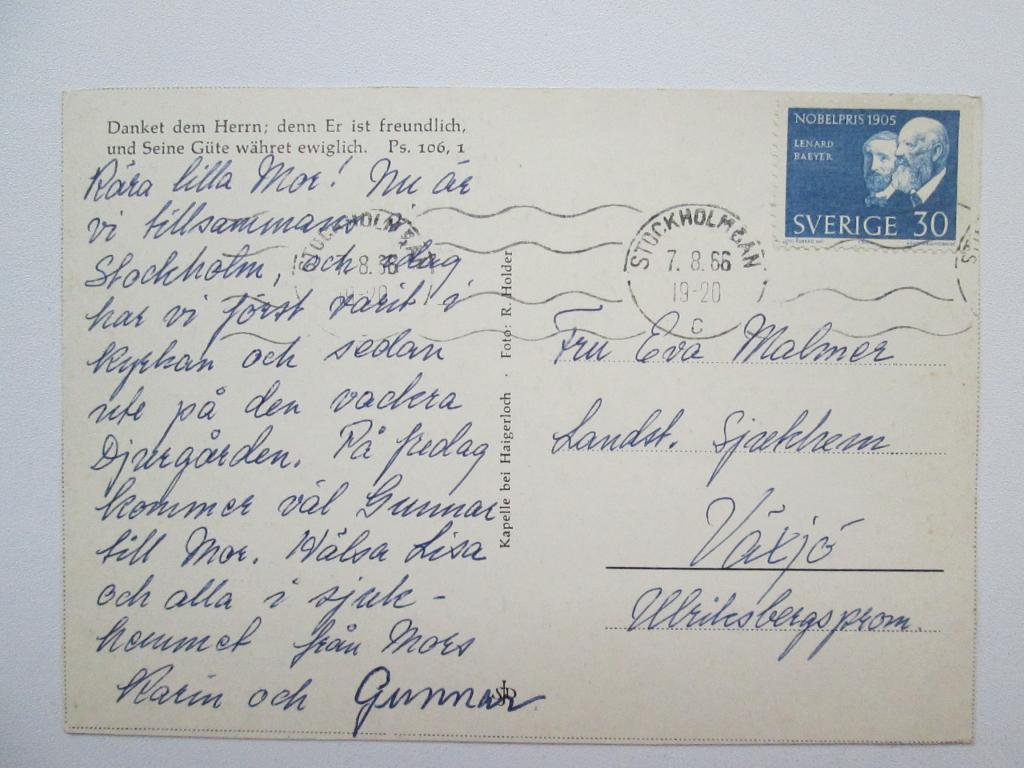 Danket dem Herrn; denn Er ist freundlich,
und Seine Güte währet ewiglich. Ps. 106, 1
Kära lilla Mor! Nu är
vi tillsammans i
Stockholm, och idag
har vi först varit i
kyrkan och sedan
ute på den vackra
Djurgården. På fredag
kommer väl Gunnar
till Mor. Hälsa Lisa
och alla i sjuk-
hemmet från Mors
Karin och Gunnar.
Kapelle bei Haigerloch · Foto: R. Holder
NOBELPRIS 1905
LENARD
BAEYER
SVERIGE 30
STOCKHOLM BAN
7.8.66
19-20
C
STOCKHOLM BAN
7.8.66
19-20
Fru Eva Malmer
Landst. Sjukhem
Växjö
Ulriksbergsprom.